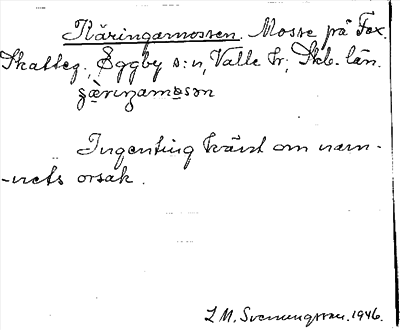 Käringamossen. Mosse på Fox.
Skatteg., Eggby s:n, Valle hr; Skb. län.
Ingenting känt om nam-
-nets orsak.
L M. Svenungsson. 1946.